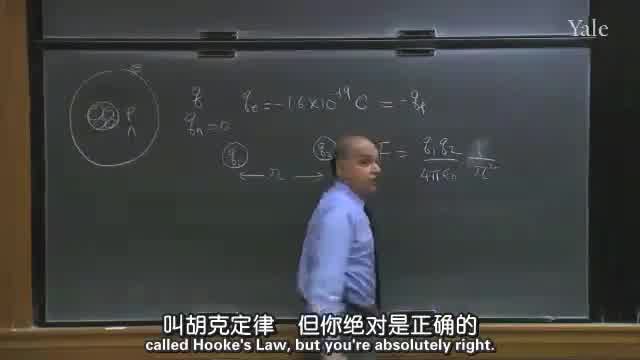 Yale
q
q_e = -1.6 × 10^-19 C = -q_p
P
n
q_n = 0
q_1
← r →
F = q_1 q_2 / 4π ε_0
叫胡克定律 但你绝对是正确的
called Hooke's Law, but you're absolutely right.